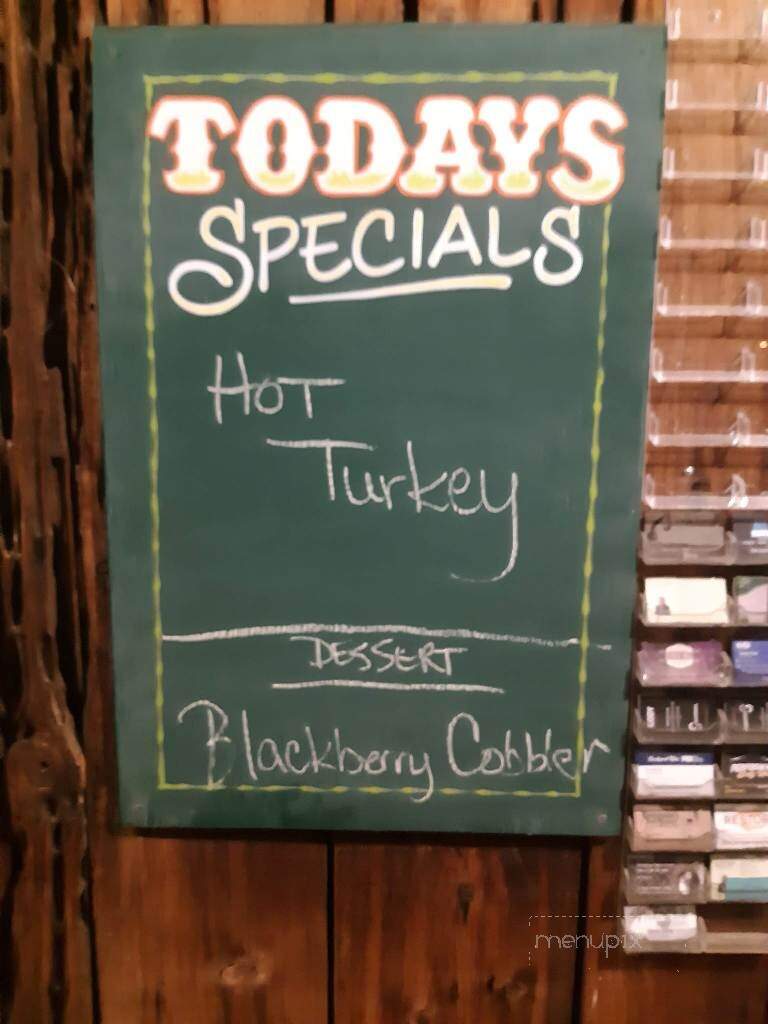 TODAYS
SPECIALS
HOT
Turkey
DESSERT
Blackberry Cobbler
menupix